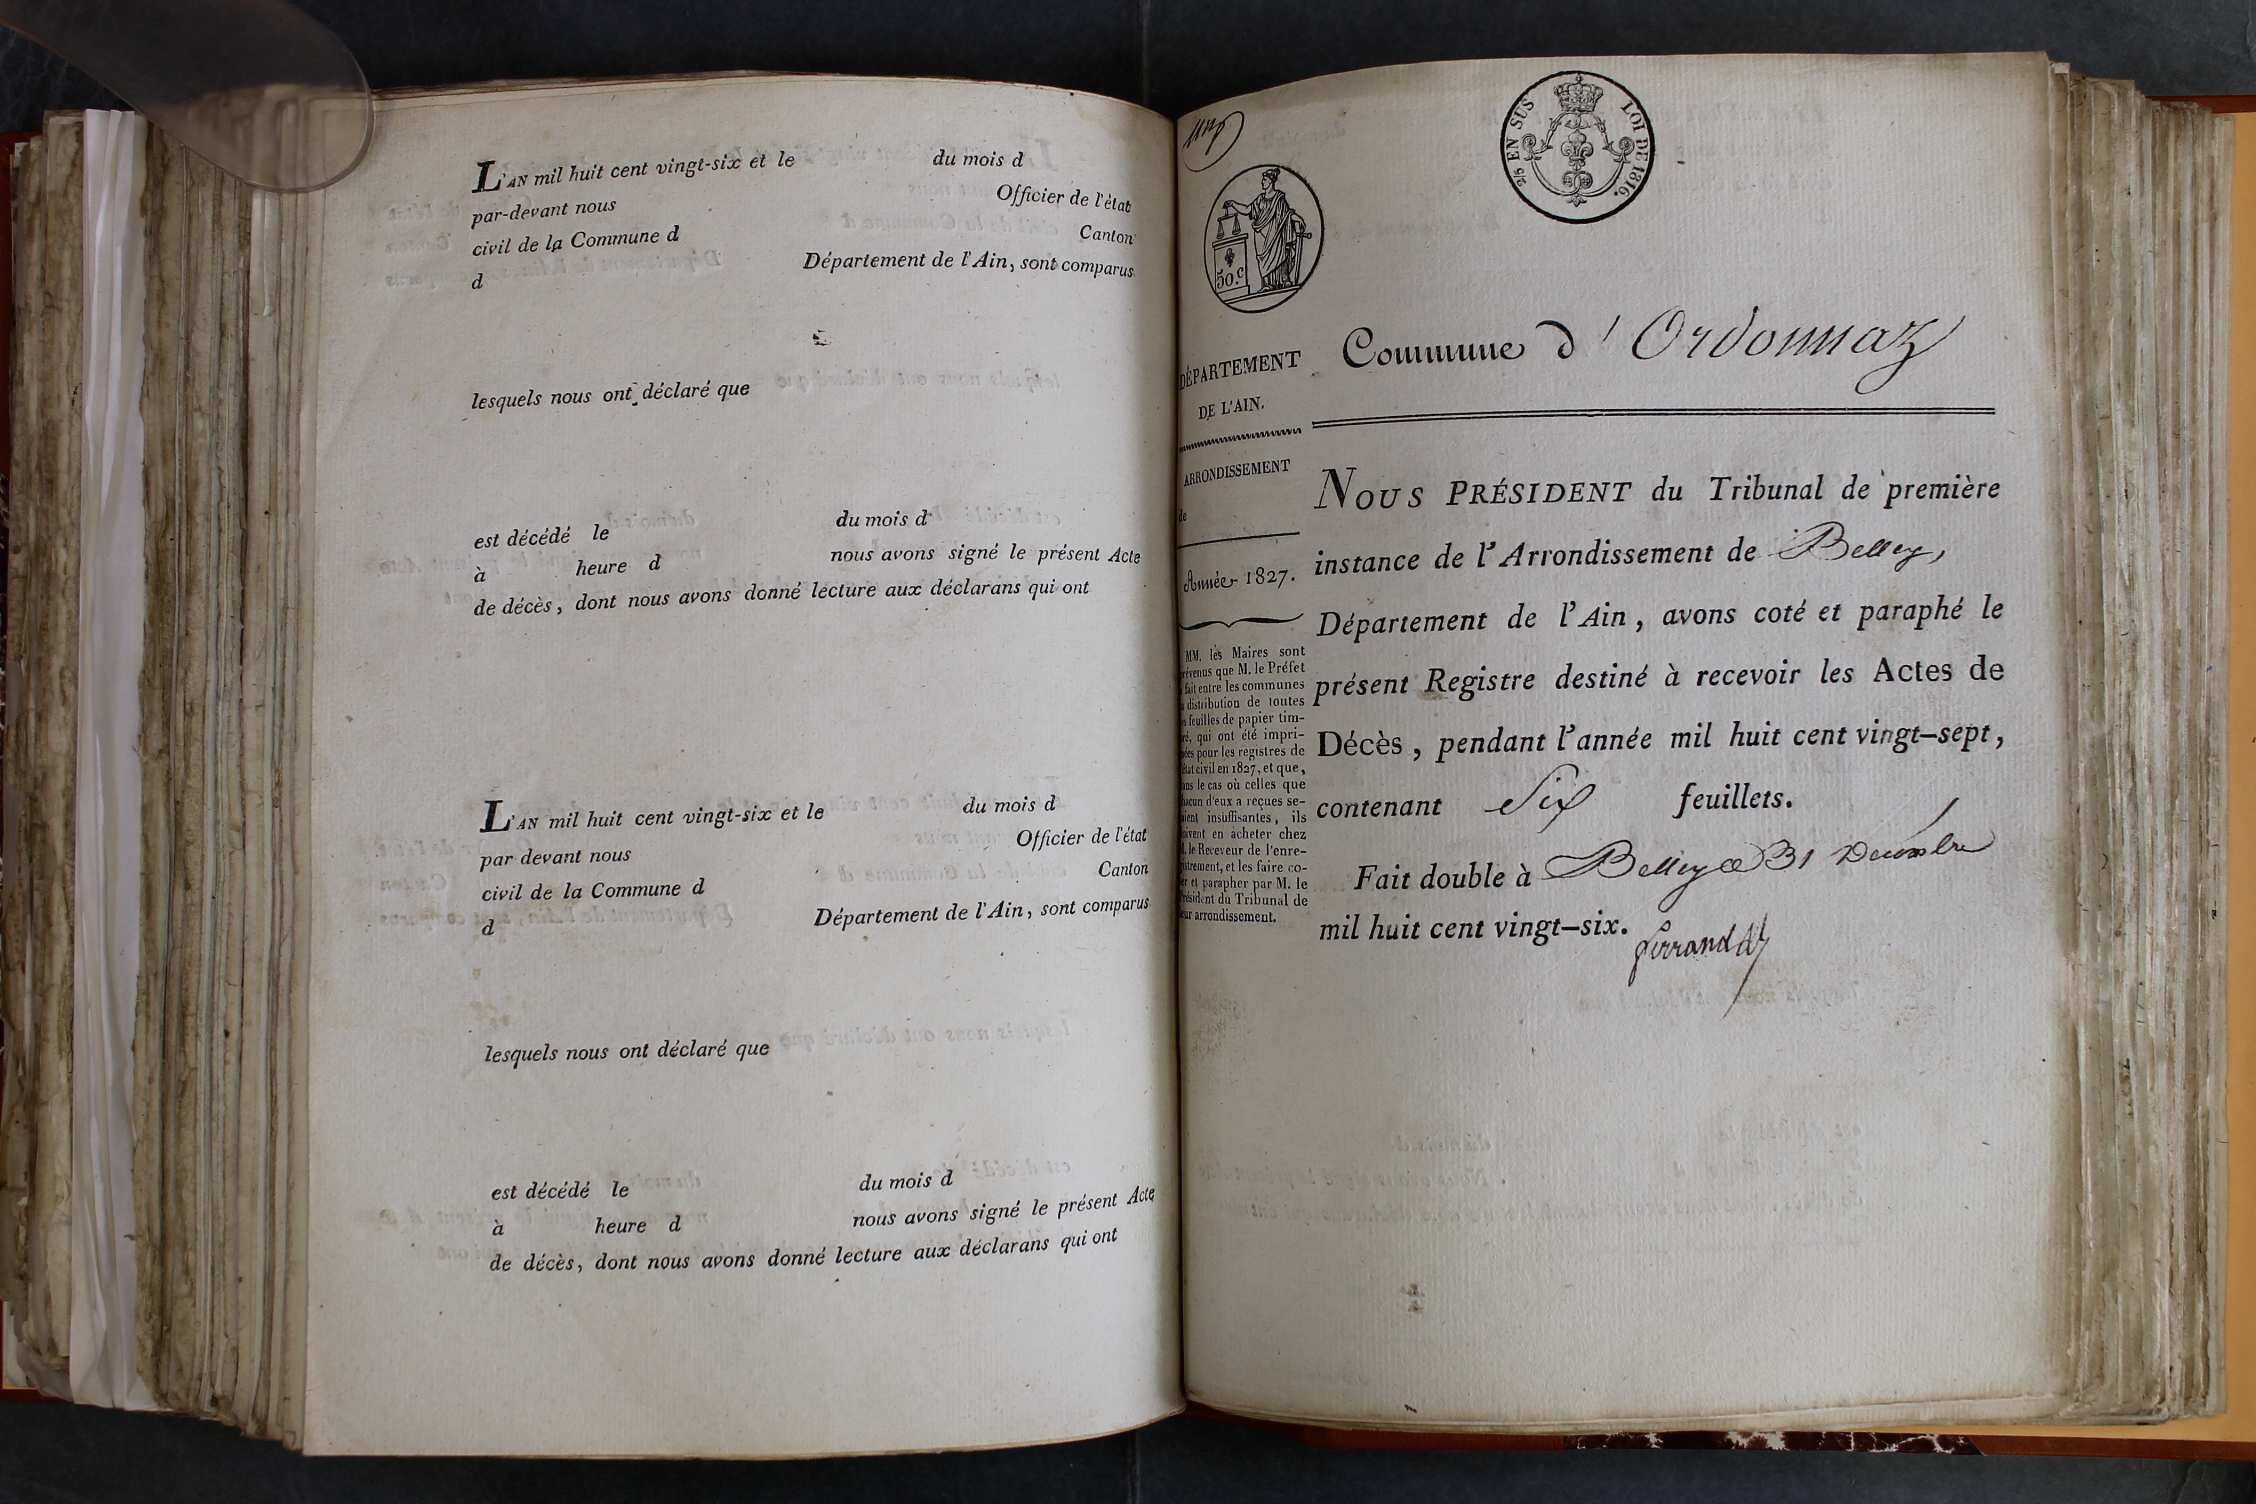 L'AN mil huit cent vingt-six et le du mois d
par-devant nous Officier de l'état
civil de la Commune d Canton
d Département de l'Ain, sont comparus
lesquels nous ont déclaré que
est décédé le du mois d
à heure d nous avons signé le présent Acte
de décès, dont nous avons donné lecture aux déclarans qui ont
L'AN mil huit cent vingt-six et le du mois d
par devant nous Officier de l'état
civil de la Commune d Canton
d Département de l'Ain, sont comparus
lesquels nous ont déclaré que
est décédé le du mois d
à heure d nous avons signé le présent Acte
de décès, dont nous avons donné lecture aux déclarans qui ont
2/5 EN SUS LOI DE 1816.
50.c
DÉPARTEMENT
DE L'AIN.
ARRONDISSEMENT
de
Année 1827.
MM. les Maires sont
prévenus que M. le Préfet
a fait entre les communes
la distribution de toutes
les feuilles de papier tim-
bré, qui ont été impri-
mées pour les registres de
l'état civil en 1827, et que,
dans le cas où celles que
chacun d'eux a reçues se-
raient insuffisantes, ils
doivent en acheter chez
M. le Receveur de l'enre-
gistrement, et les faire co-
ter et parapher par M. le
Président du Tribunal de
leur arrondissement.
Commune d'Ordonnaz
NOUS PRÉSIDENT du Tribunal de première
instance de l'Arrondissement de Belley,
Département de l'Ain, avons coté et paraphé le
présent Registre destiné à recevoir les Actes de
Décès, pendant l'année mil huit cent vingt-sept,
contenant Six feuillets.
Fait double à Belley ce 31 Décembre
mil huit cent vingt-six.